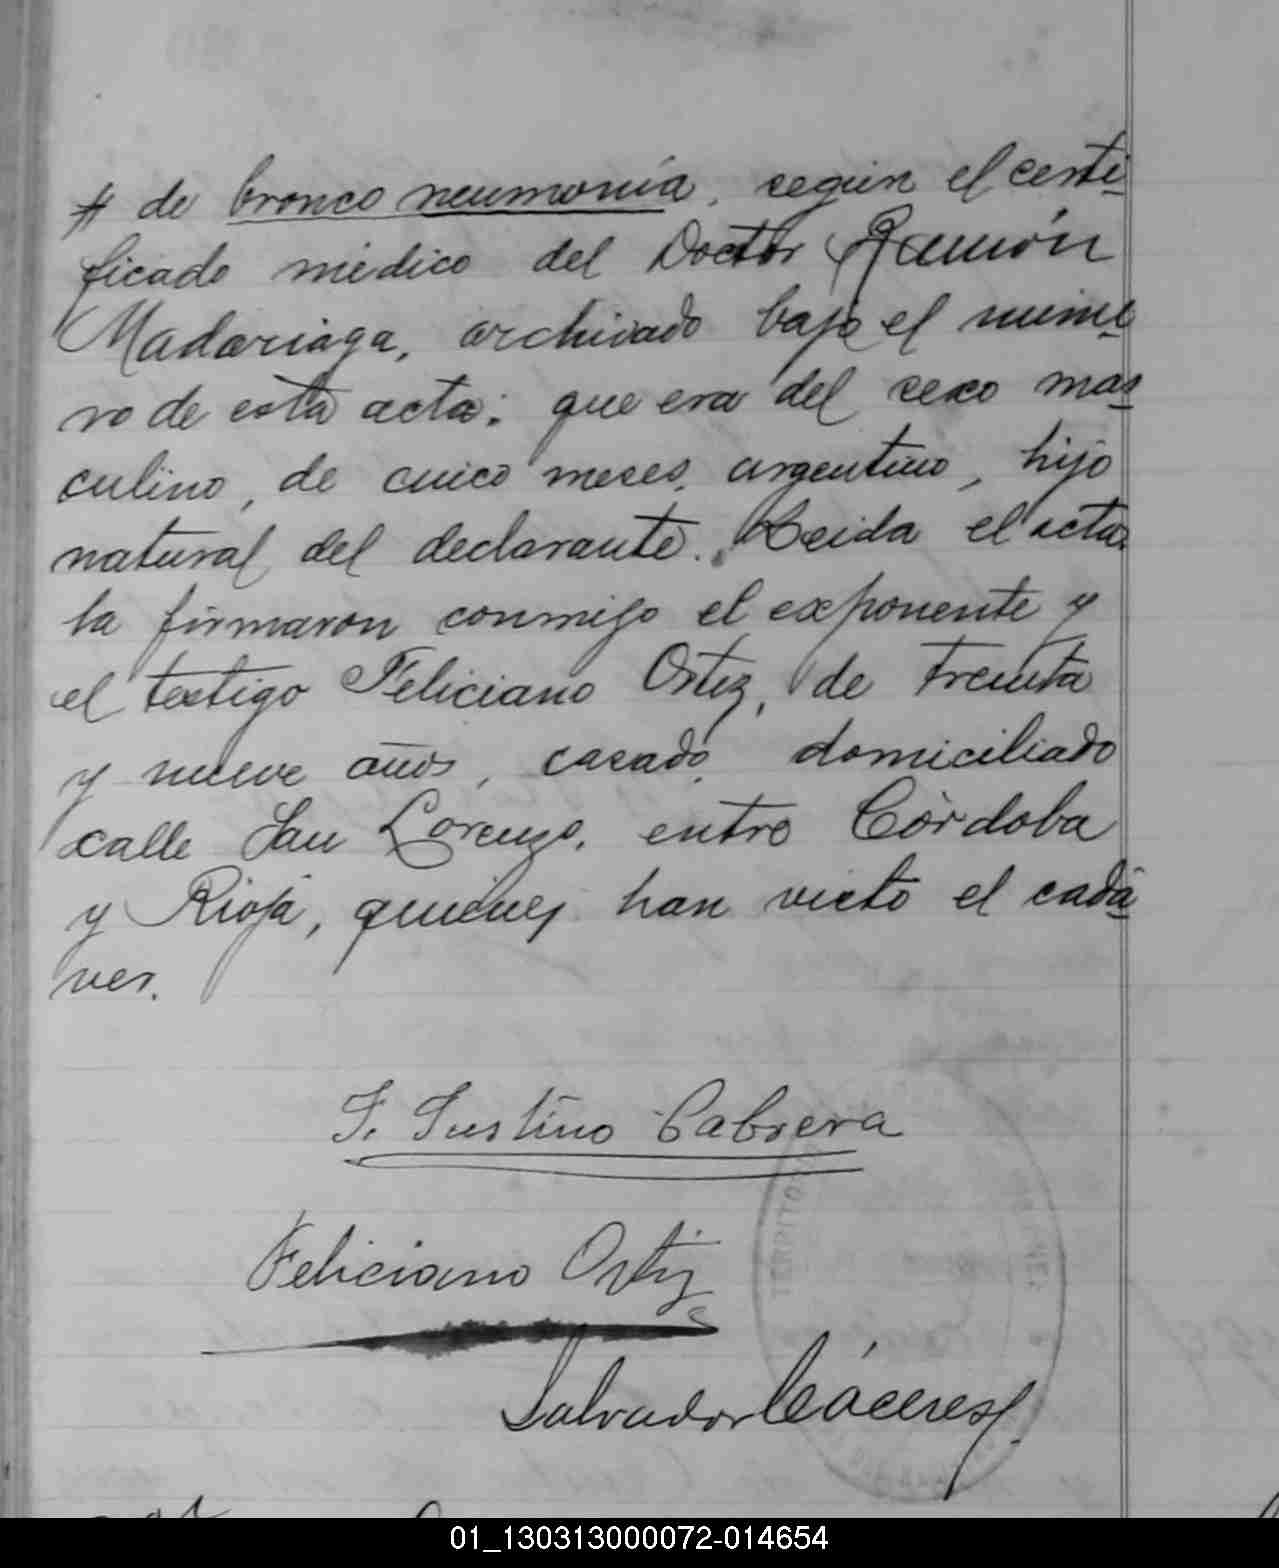 # de bronco neumonía, según el certi-
ficado médico del Doctor Ramón
Madariaga, archivado bajo el núme-
ro de esta acta; que era del sexo mas-
culino, de cinco meses, argentino, hijo
natural del declarante. Leida el acta
la firmaron conmigo el exponente y
el testigo Feliciano Ortiz, de treinta
y nueve años, casado, domiciliado
calle San Lorenzo, entre Córdoba
y Rioja, quienes han visto el cadá-
ver.
F. Justino Cabrera
Feliciano Ortiz
Salvador Cáceres
01_130313000072-014654